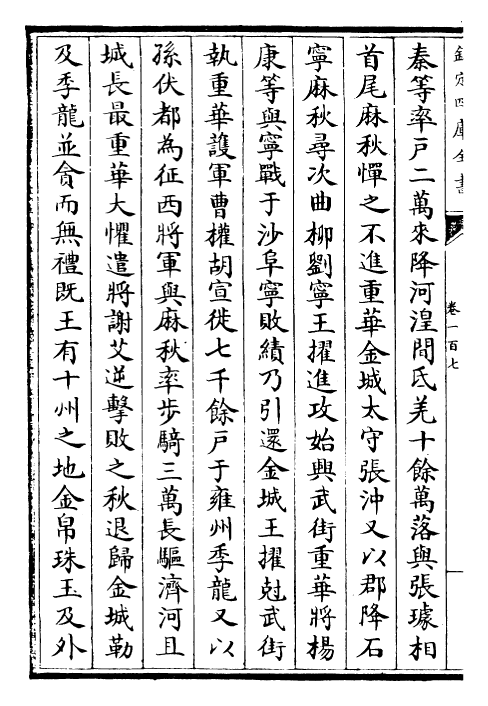 欽定四庫全書
卷一百七
秦等率戸二萬來降河湟間氐羌十餘萬落與張璩相
首尾麻秋憚之不進重華金城太守張沖又以郡降石
寧麻秋尋次曲柳劉寧王擢進攻始興武街重華將楊
康等與寧戰于沙阜寧敗績乃引還金城王擢尅武街
執重華護軍曹權胡宣徙七千餘戸于雍州季龍又以
孫伏都為征西將軍與麻秋率步騎三萬長驅濟河且
城長最重華大懼遣將謝艾逆擊敗之秋退歸金城勒
及季龍並貪而無禮既王有十州之地金帛珠玉及外